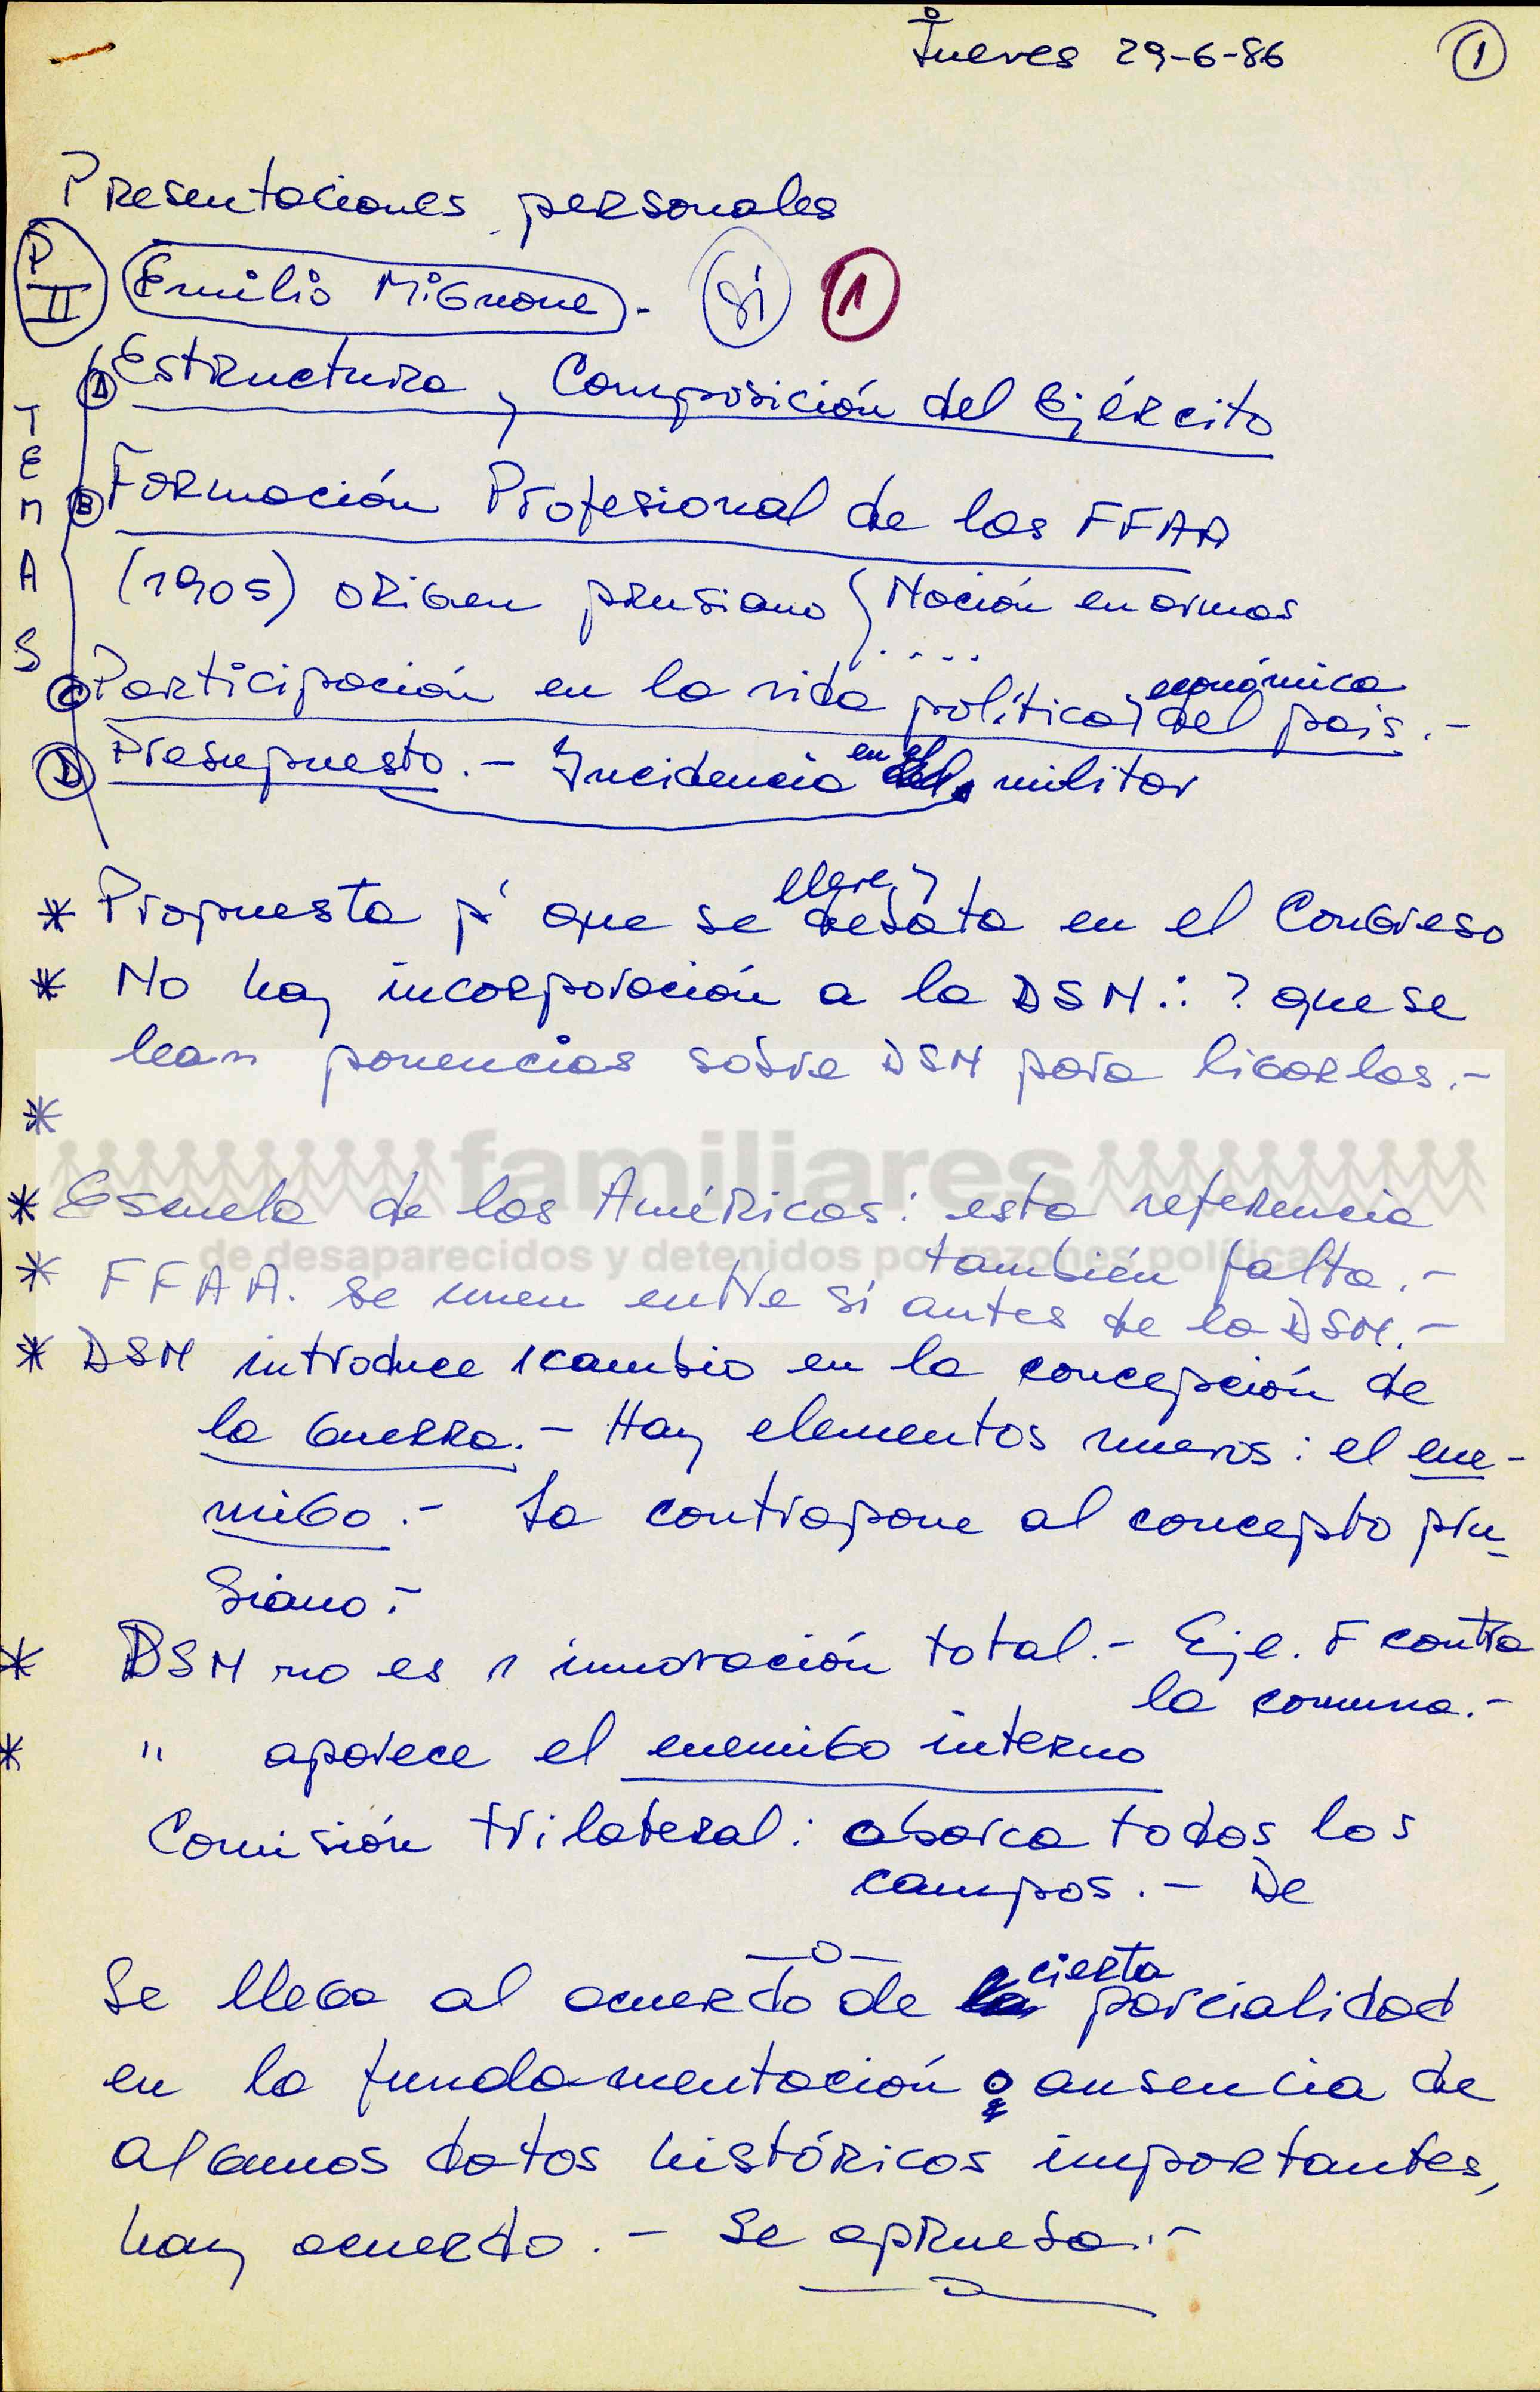 Jueves 29-6-86 1
Presentaciones personales
P II Emilio Mignone. - Si 1
TEMAS
A Estructura y Composición del Ejército
B Formación Profesional de las FFAA
(1905) origen prusiano { Nación en armas
. . . .
C Participación en la vida política y económica del país. -
D Presupuesto. - Incidencia en el militar
* Propuesta p' que se lleve y debata en el Congreso
* No hay incorporación a la DSN ∴ ? que se
lean ponencias sobre DSN para ligarlas. -
*
familiares
de desaparecidos y detenidos por razones políticas
* Escuela de las Américas: esta referencia
también falta. -
* FFAA. se unen entre sí antes de la DSN. -
* DSN introduce 1 cambio en la concepción de
la Guerra. - Hay elementos nuevos: el ene-
migo. - La contrapone al concepto pru-
siano. -
* DSN no es 1 innovación total. - Eje. F contra
la comuna. -
* " aparece el enemigo interno
Comisión trilateral: abarca todos los
campos. - De
—o—
Se llega al acuerdo de cierta parcialidad
en la fundamentación ausencia de
algunos datos históricos importantes,
hay acuerdo. - Se aprueba. -